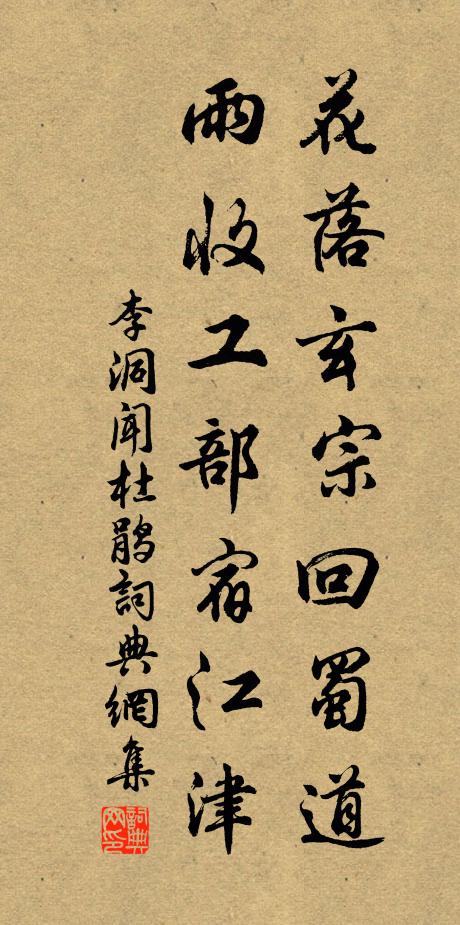 花落玄宗回蜀道
雨收工部宿江津
李洞闻杜鹃詞典網集
詞典网印